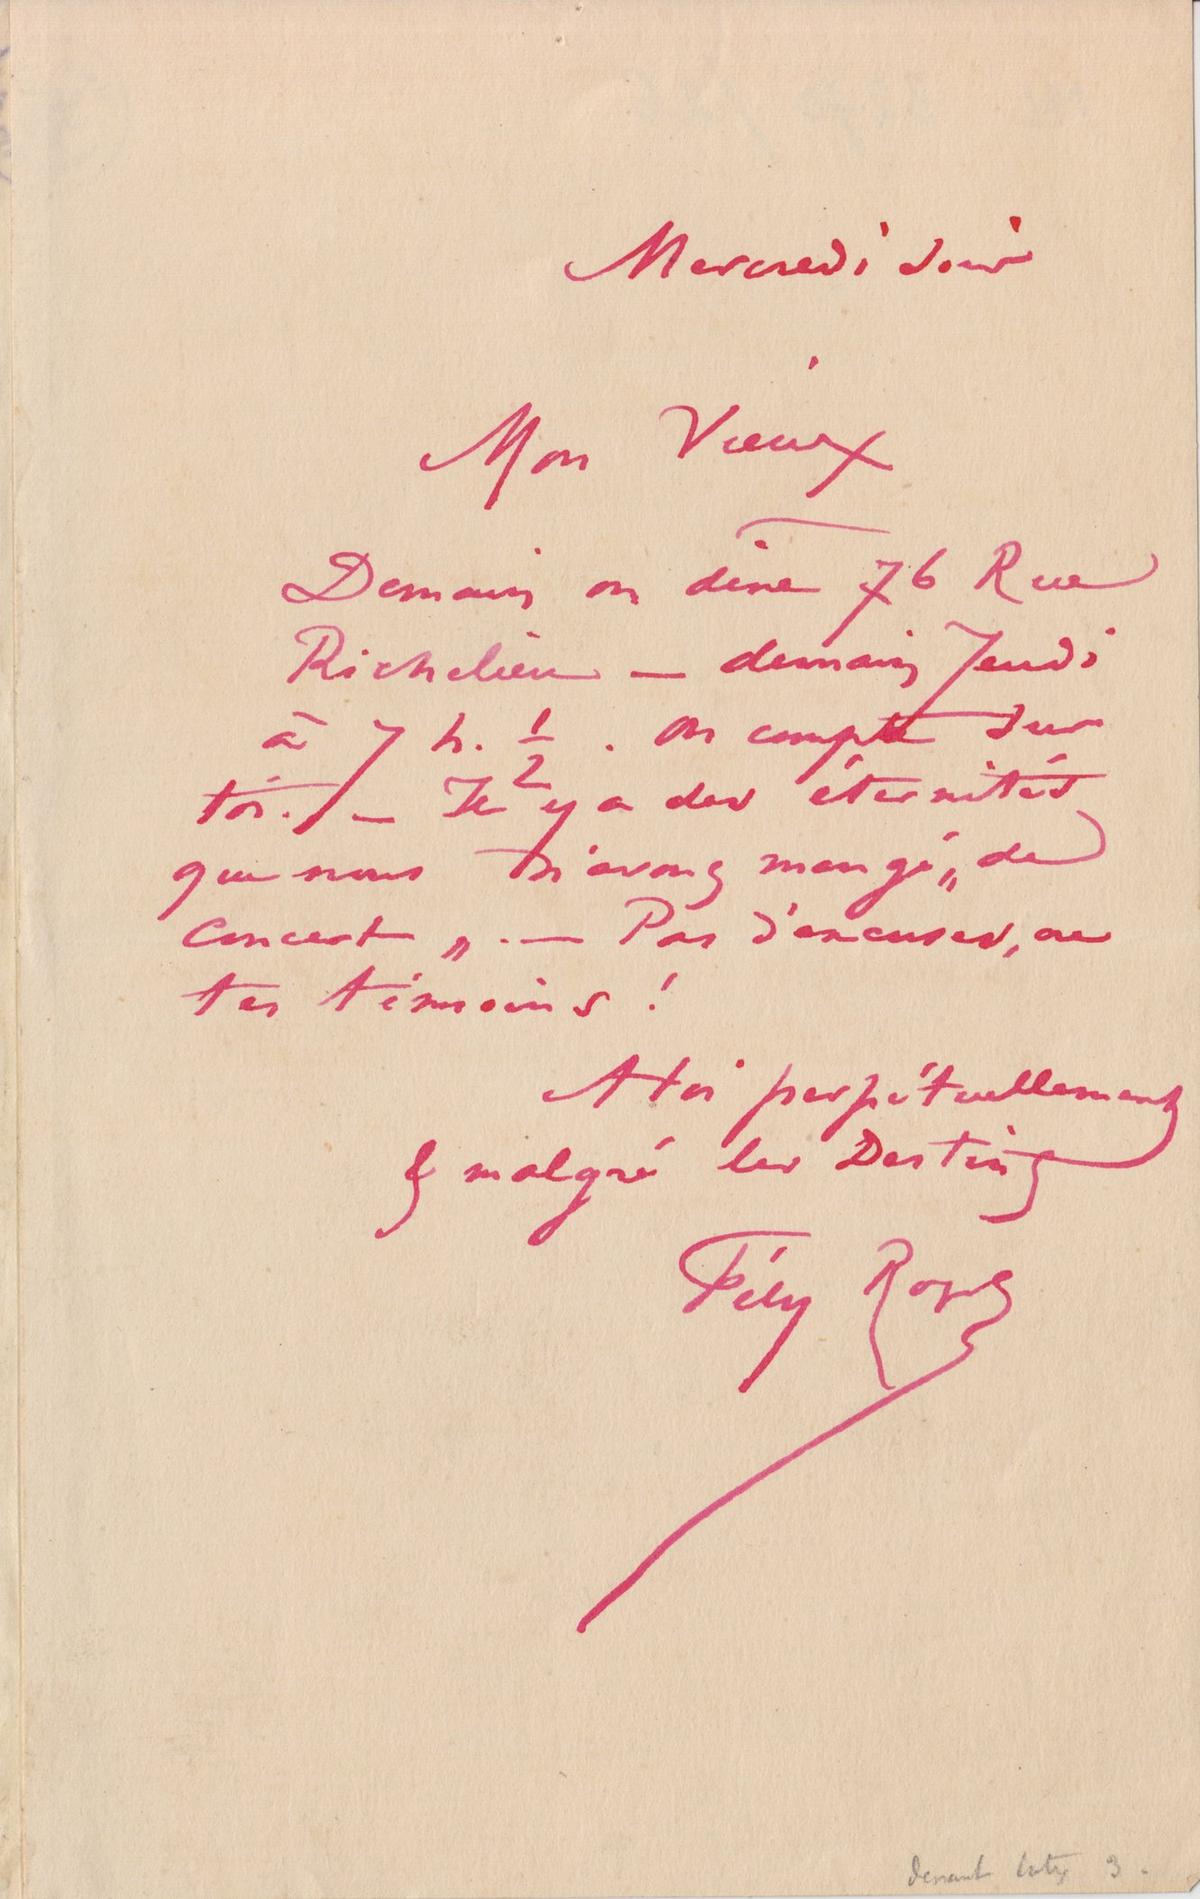 Mercredi soir
Mon Vieux
Demain on dîne 76 Rue
Richelieu — demain Jeudi
à 7 h. 1/2 . On compte sur
toi. — Il y a des éternités
que nous n'avons mangé „ de
concert „ . — Pas d'excuses, ou
tes témoins !
A toi perpétuellement
& malgré les Destins
Fély Rops
devant 3 .